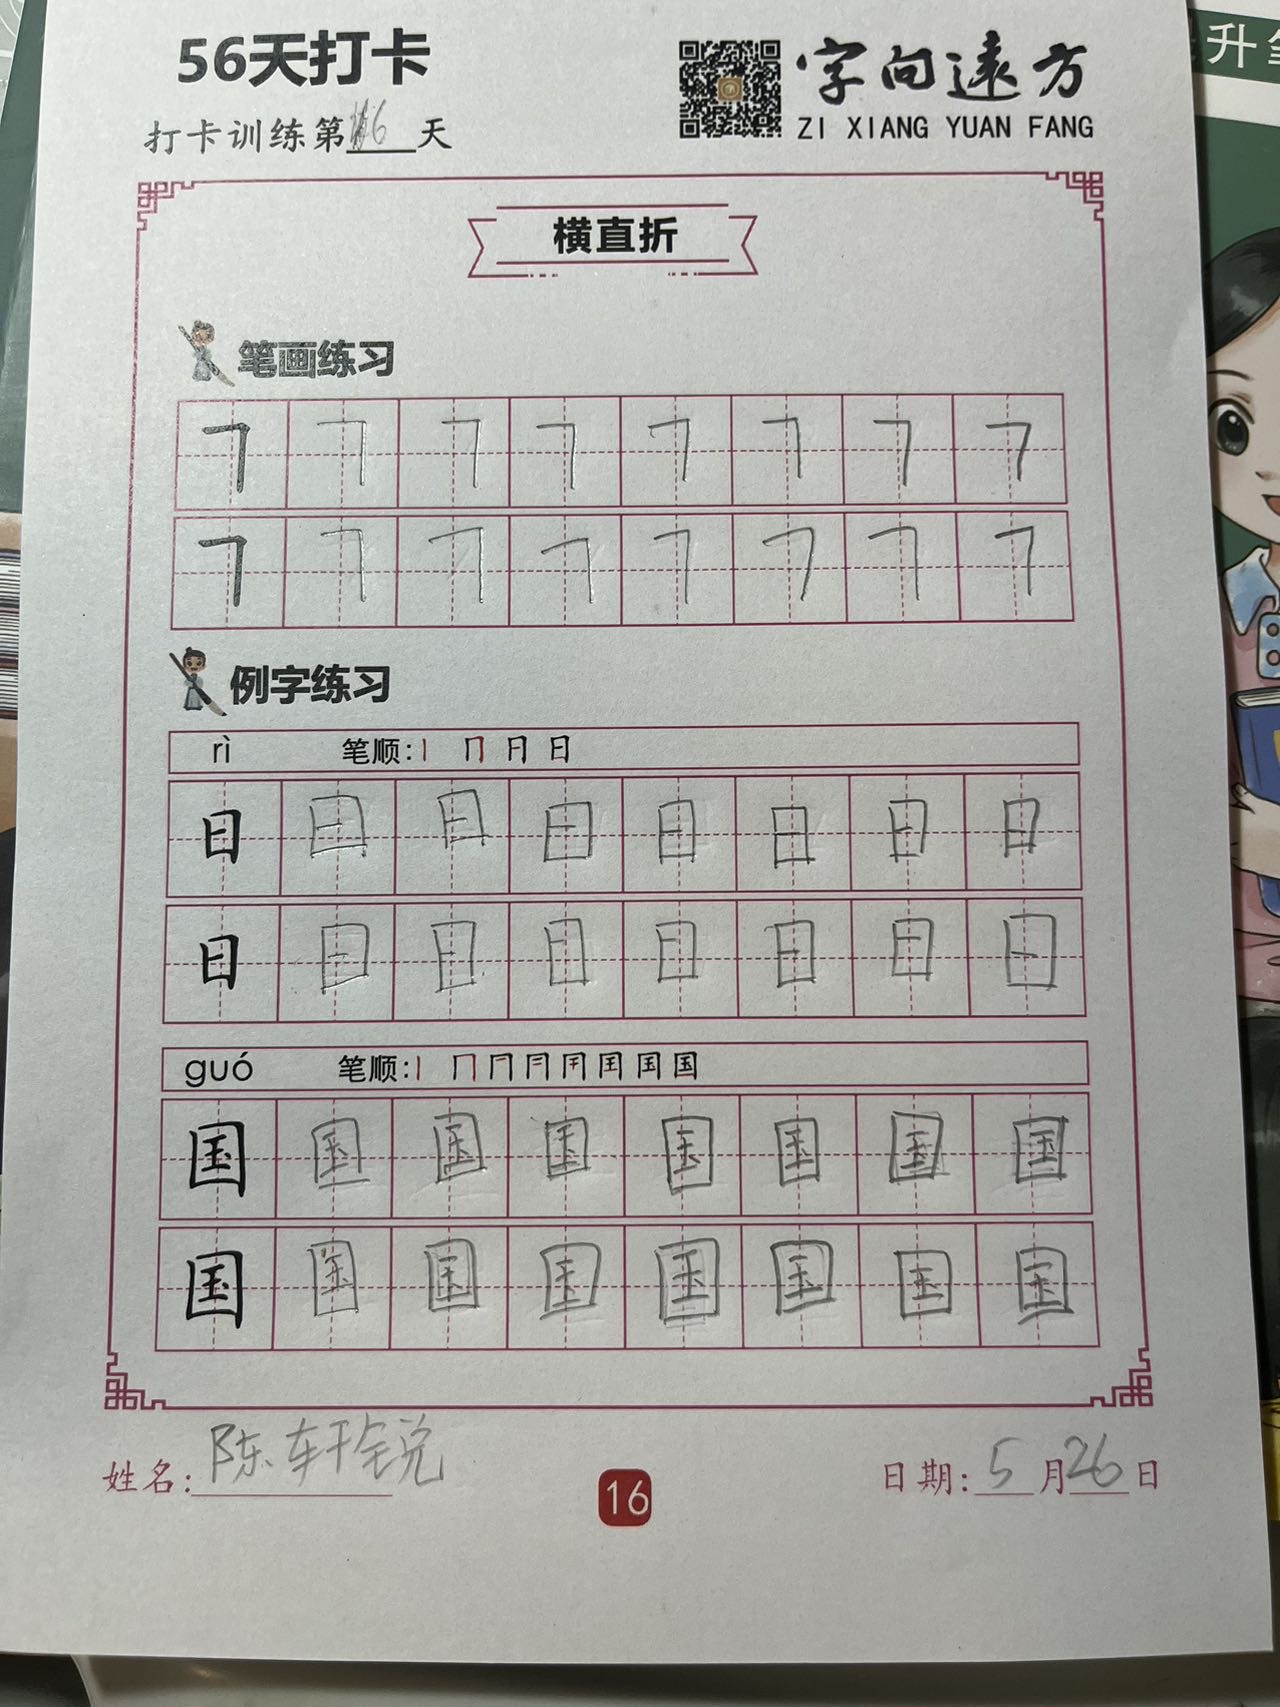 56天打卡
字向遠方
ZI XIANG YUAN FANG
打卡训练第16天
升
横直折
笔画练习
㇕ ㇕ ㇕ ㇕ ㇕ ㇕ ㇕ ㇕
㇕ ㇕ ㇕ ㇕ ㇕ ㇕ ㇕ ㇕
例字练习
rì 笔顺:丨 冂 日 日
日 日 日 日 日 日 日 日
日 日 日 日 日 日 日 日
guó 笔顺:丨 冂 国
国 国 国 国 国 国 国 国
国 国 国 国 国 国 国 国
姓名:陈轩锐
16
日期:5月26日